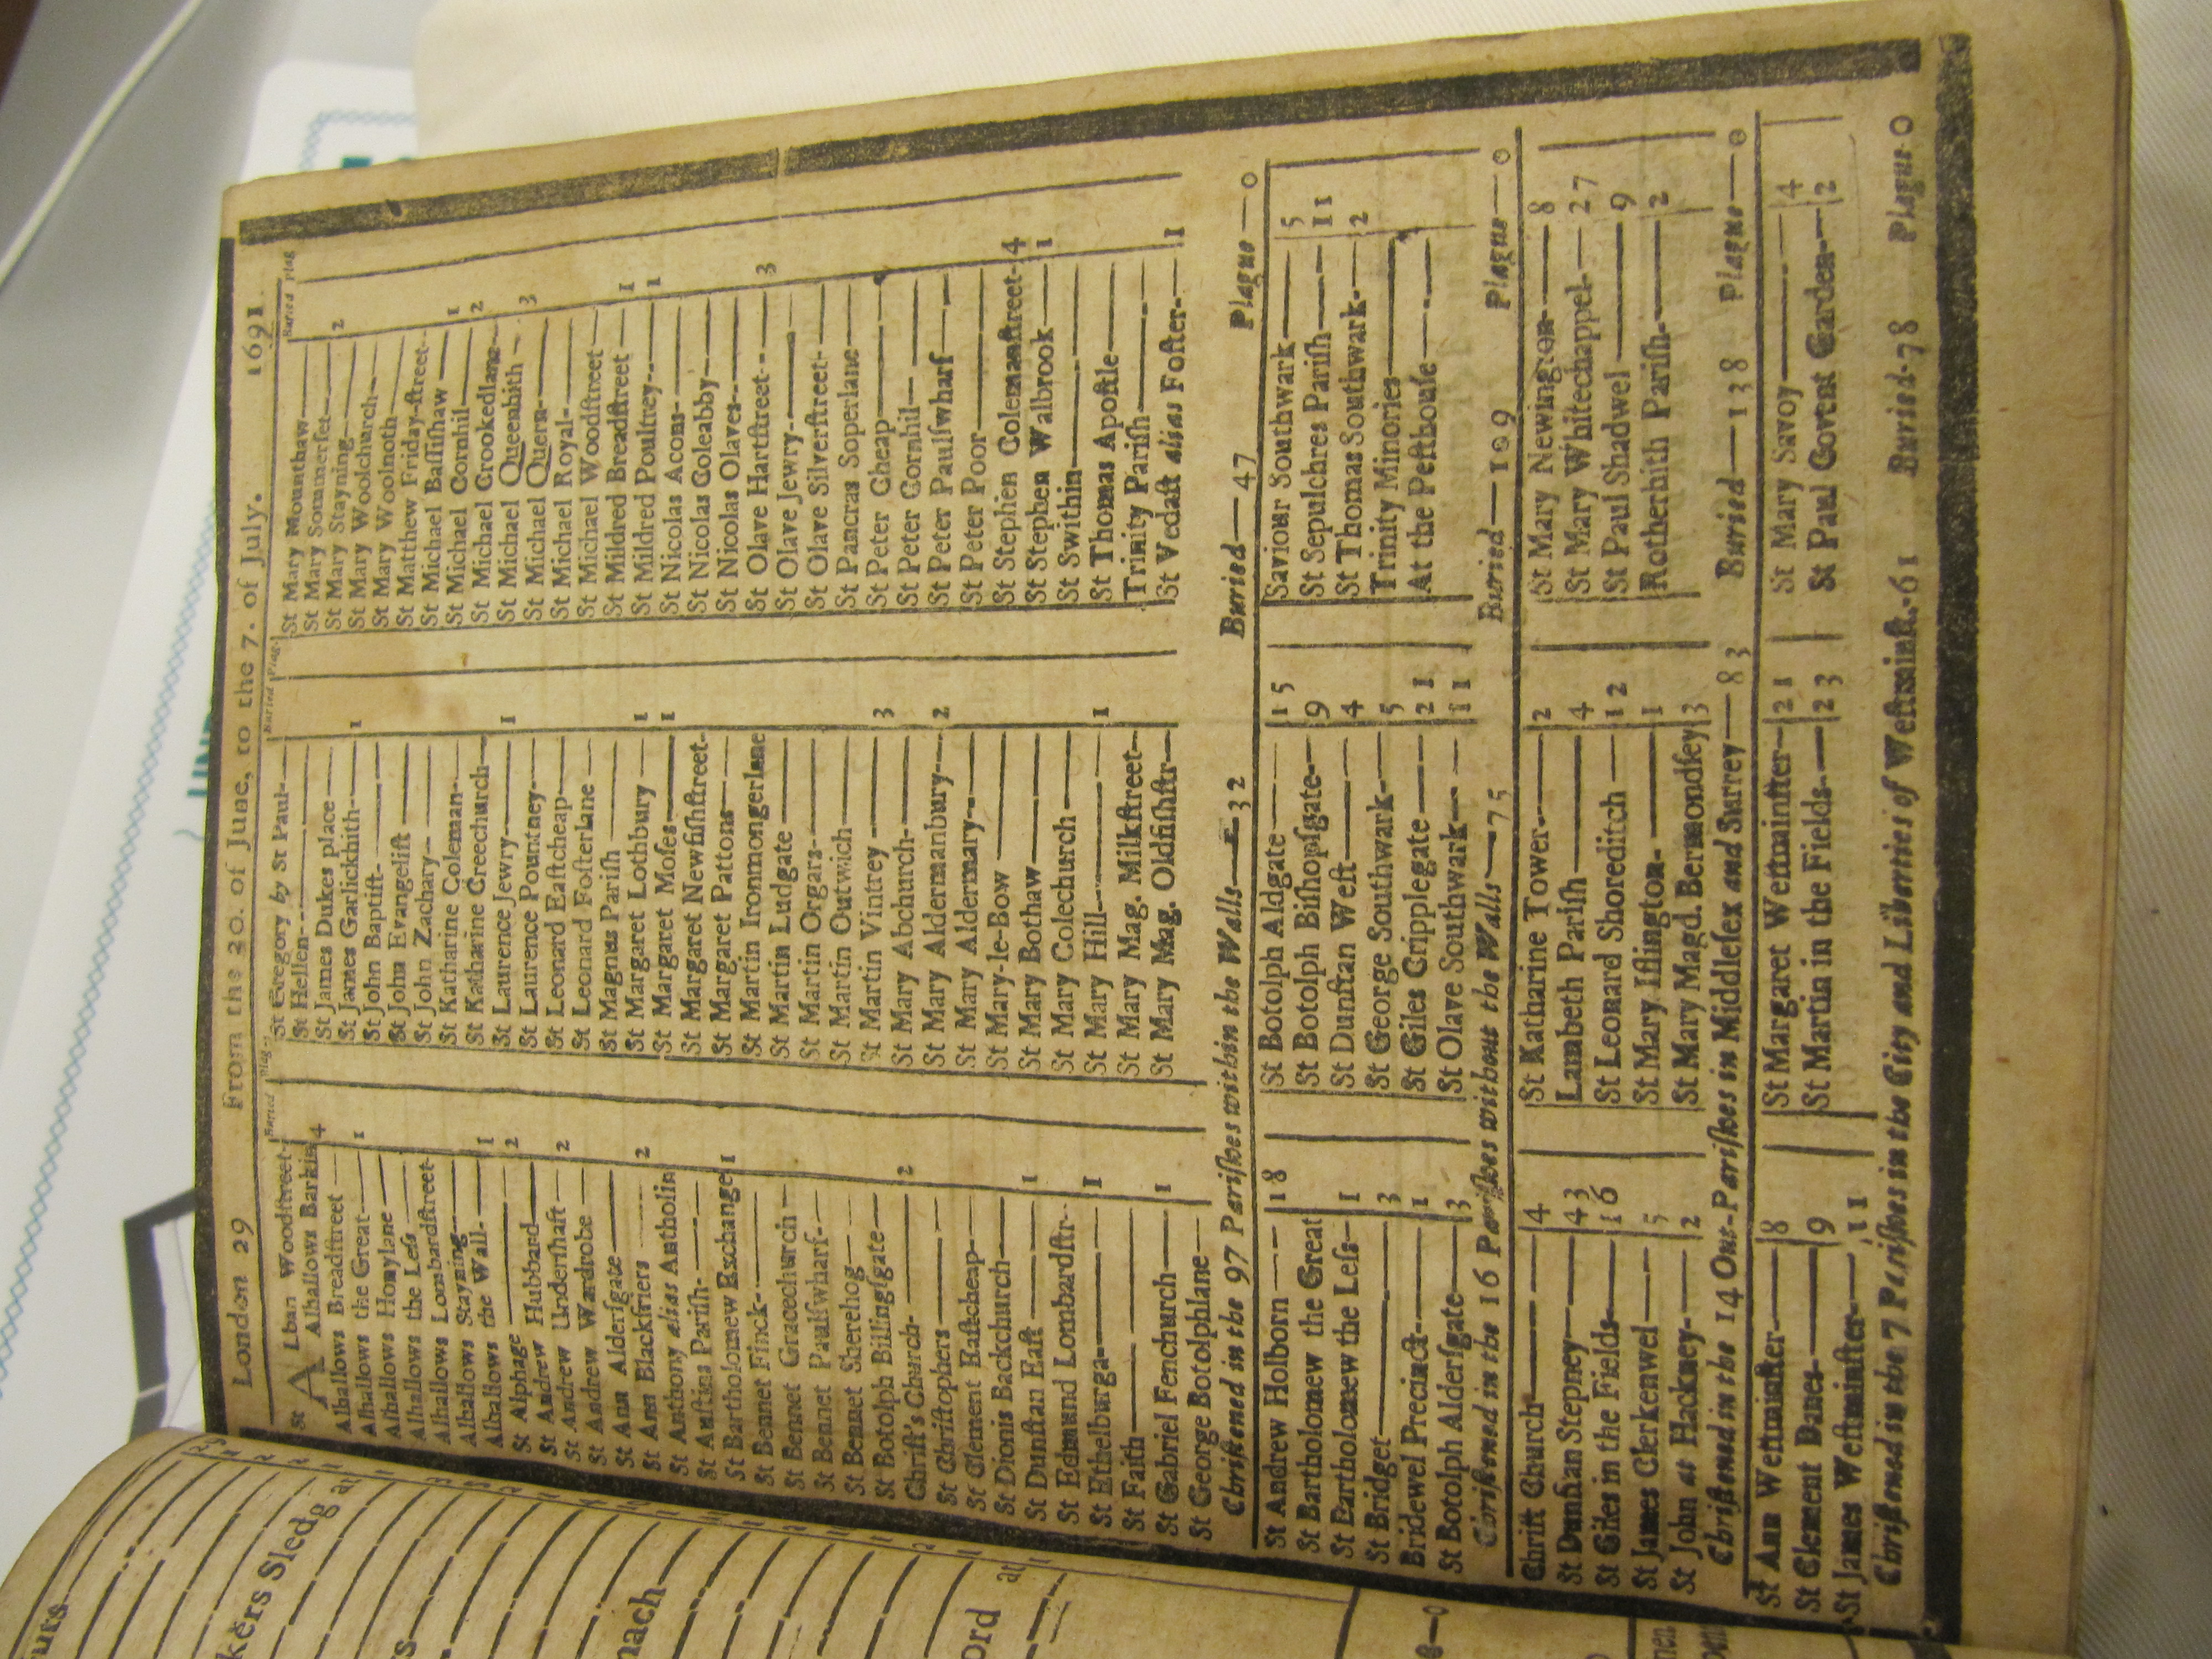 London 29 From the 30. of June, to the 7. of July. 1691
Buried Plag.
St ALban Woodſtreet
Alhallows Barkin 4
Alhallows Breadſtreet
Alhallows the Great 1
Alhallows Honylane
Alhallows the Leſs
Alhallows Lombardſtreet
Alhallows Stayning 1
Alhallows the Wall 2
St Alphage
St Andrew Hubbard 2
St Andrew Underſhaft
St Andrew Wardrobe
St Ann Alderſgate 2
St Ann Blackfriers
St Anthony alias Antholin
St Auſtins Pariſh
St Bartholomew Exchange 1
St Bennet Finck
St Bennet Gracechurch
St Bennet Paulſwharf
St Bennet Sherehog
St Botolph Billingſgate
Chriſt's Church 2
St Chriſtophers
St Clement Eaſtcheap
St Dionis Backchurch
St Dunſtan Eaſt 1
St Edmund Lombardſtr
St Ethelburga 1
St Faith
St Gabriel Fenchurch 1
St George Botolphlane
Buried Plag.
St Gregory by St Paul
St Hellen
St James Dukes place
St James Garlickhith 1
St John Baptiſt
St John Evangeliſt
St John Zachary
St Katharine Coleman
St Katharine Creechurch
St Laurence Jewry 1
St Laurence Pountney
St Leonard Eaſtcheap
St Leonard Foſterlane
St Magnes Pariſh
St Margaret Lothbury 1
St Margaret Moſes 1
St Margaret Newfiſhſtreet
St Margaret Pattons
St Martin Ironmongerlane
St Martin Ludgate
St Martin Orgars
St Martin Outwich
St Martin Vintrey 3
St Mary Abchurch
St Mary Aldermanbury 2
St Mary Aldermary
St Mary-le-Bow
St Mary Bothaw
St Mary Colechurch
St Mary Hill 1
St Mary Mag. Milkſtreet
St Mary Mag. Oldfiſhſtr
Buried Plag
St Mary Mounthaw
St Mary Sommerſet 2
St Mary Stayning
St Mary Woolchurch
St Mary Woolnoth
St Matthew Friday-ſtreet
St Michael Baſſiſhaw 1
St Michael Cornhil 2
St Michael Crookedlane
St Michael Queenhith 3
St Michael Quern
St Michael Royal
St Michael Woodſtreet
St Mildred Breadſtreet 1
St Mildred Poultney 1
St Nicolas Acons
St Nicolas Coleabby
St Nicolas Olaves
St Olave Hartſtreet 3
St Olave Jewry
St Olave Silverſtreet
St Pancras Soperlane
St Peter Cheap
St Peter Cornhil
St Peter Paulſwharf
St Peter Poor
St Stephen Colemanſtreet 4
St Stephen Walbrook 1
St Swithin
St Thomas Apoſtle
Trinity Pariſh
St Vedaſt alias Foſter 1
Chriſtened in the 97 Pariſhes within the Walls 32 Buried 47 Plague 0
St Andrew Holborn 18
St Bartholomew the Great
St Bartholomew the Leſs 1
St Bridget 3
Bridewel Precinct 1
St Botolph Alderſgate 3
St Botolph Aldgate 15
St Botolph Biſhopſgate 9
St Dunſtan Weſt 4
St George Southwark 5
St Giles Cripplegate 21
St Olave Southwark 11
Saviour Southwark 5
St Sepulchres Pariſh 11
St Thomas Southwark 2
Trinity Minories
At the Peſthouſe
Chriſtened in the 16 Pariſhes without the Walls 75 Buried 109 Plague 0
Chriſt Church 4
St Dunſtan Stepney 43
St Giles in the Fields 16
St James Clerkenwel 5
St John at Hackney 2
St Katharine Tower 2
Lambeth Pariſh 4
St Leonard Shoreditch 12
St Mary Iſlington 1
St Mary Magd. Bermondſey 3
St Mary Newington 8
St Mary Whitechappel 27
St Paul Shadwel 9
Rotherhith Pariſh 2
Chriſtened in the 14 Out-Pariſhes in Middleſex and Surrey 83 Buried 138 Plague 0
St Ann Weſtminſter 8
St Clement Danes 9
St James Weſtminſter 11
St Margaret Weſtminſter 21
St Martin in the Fields 23
St Mary Savoy 4
St Paul Covent Garden 2
Chriſtened in the 7 Pariſhes in the City and Liberties of Weſtminſt. 61 Buried 78 Plague 0
kers Sledg at
nach
ord at